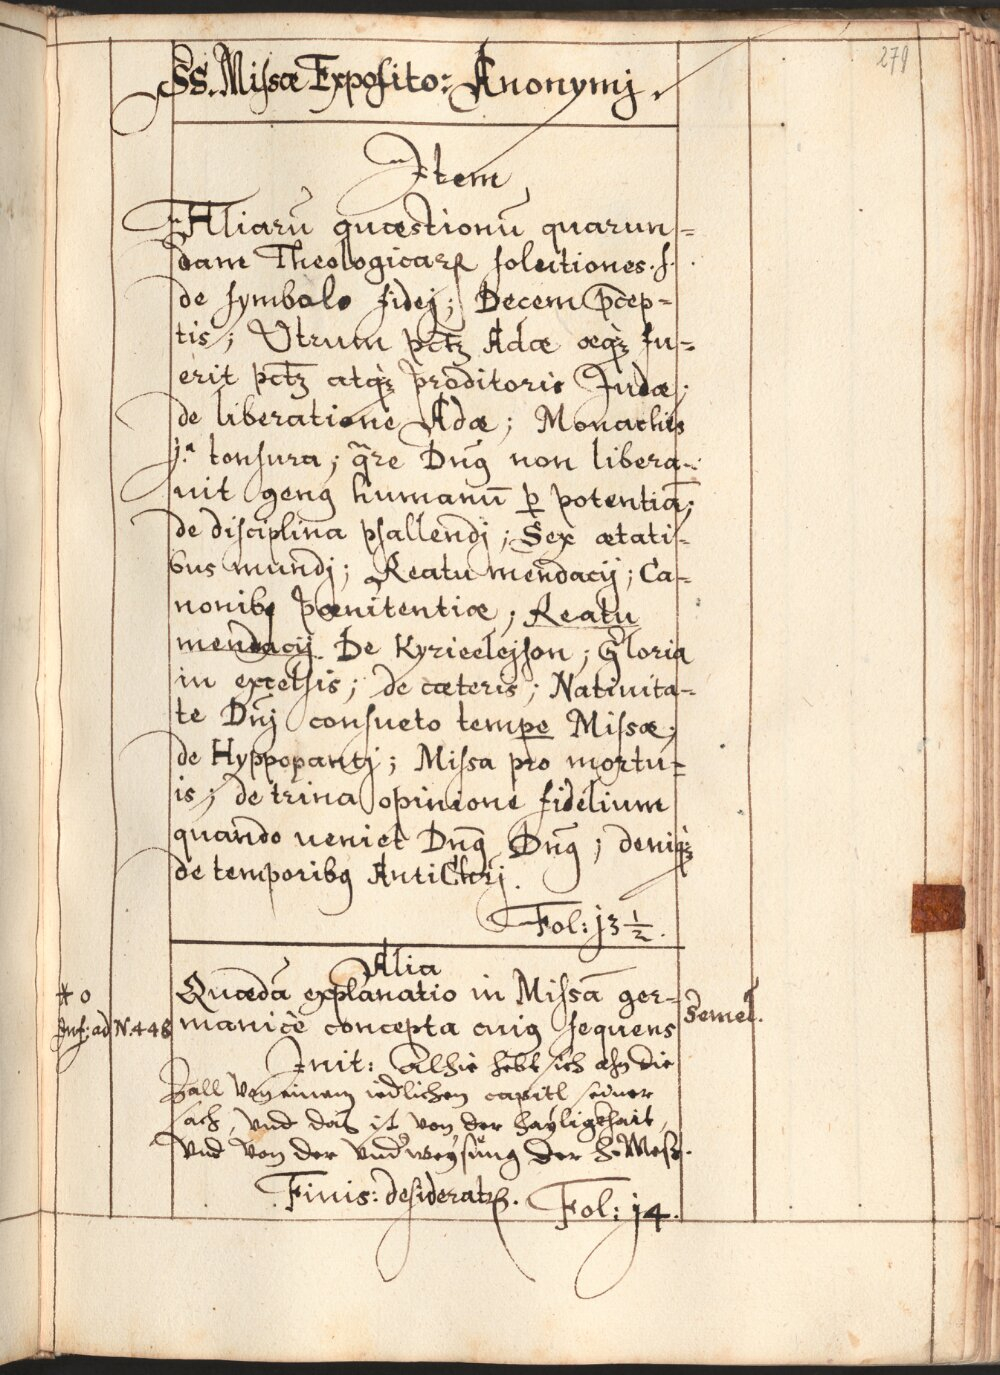 279
SS. Missæ Expositio: Anonymj.
Item
Aliarū quæstionū quarun=
dam Theologicarꝝ solutiones. s.
de symbolo fidej; Decem p̄cep=
tis; Utrum pctꝫ Adæ æqꝫ fu=
erit pctꝫ atqꝫ proditoris Judæ;
de liberatione Adæ; Monachis
j.ª tonsura; qre Dnꝰ non libera=
uit genꝰ humanū ꝑ potentiā;
de disciplina psallendj; Sex ætati=
bus mundj; Reatu mendacij; Ca=
nonibꝰ pœnitentiæ; Reatu
mendacij. De Kyrieelejson; Gloria
in excelsis; de cæteris; Natiuita=
te Dnj consueto tempe Missæ;
de Hyppopantj; Missa pro mortu=
is; de trina opinione fidelium
quando ueniet Dnꝰ Dnꝰ; deniqꝫ
de temporibꝰ AntiChrj.
Fol: j3 1/2.
Alia
* o
Quædā explanatio in Missā ger=
Semel.
Inf: ad N. 448 manicè concepta cuiꝰ sequens
Init: Alhie hebt sich ahn die
Zall von einem iedlichen capitl seiner
sach, vnd das ist von der hayligkhait,
vnd von der vndweysüng der H. Meß.
Finis: desideratꝝ. Fol: j4.